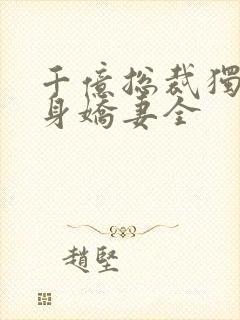 千億总裁獨
身嬌妻全
趙堅